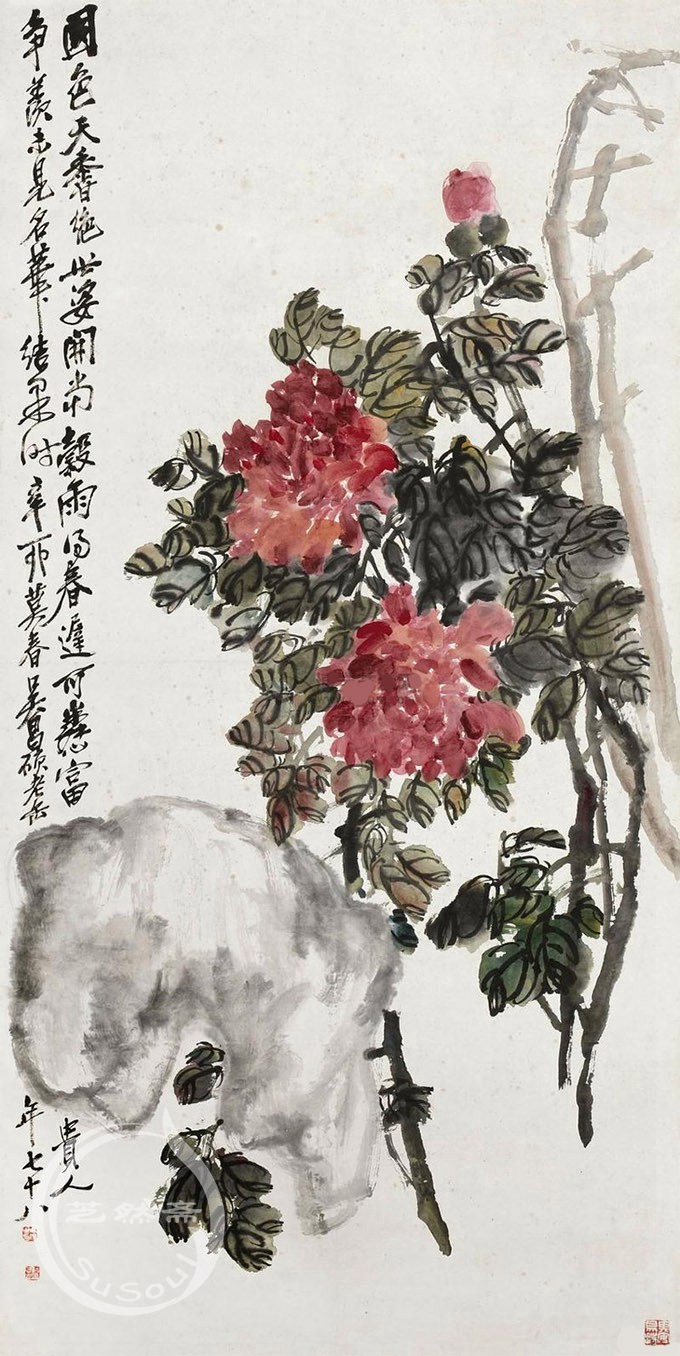 國色天香絕世姿開當穀雨得春遲可憐富貴人
爭羨未見名華結果時辛酉莫春吳昌碩老缶年七十八
SuSoul